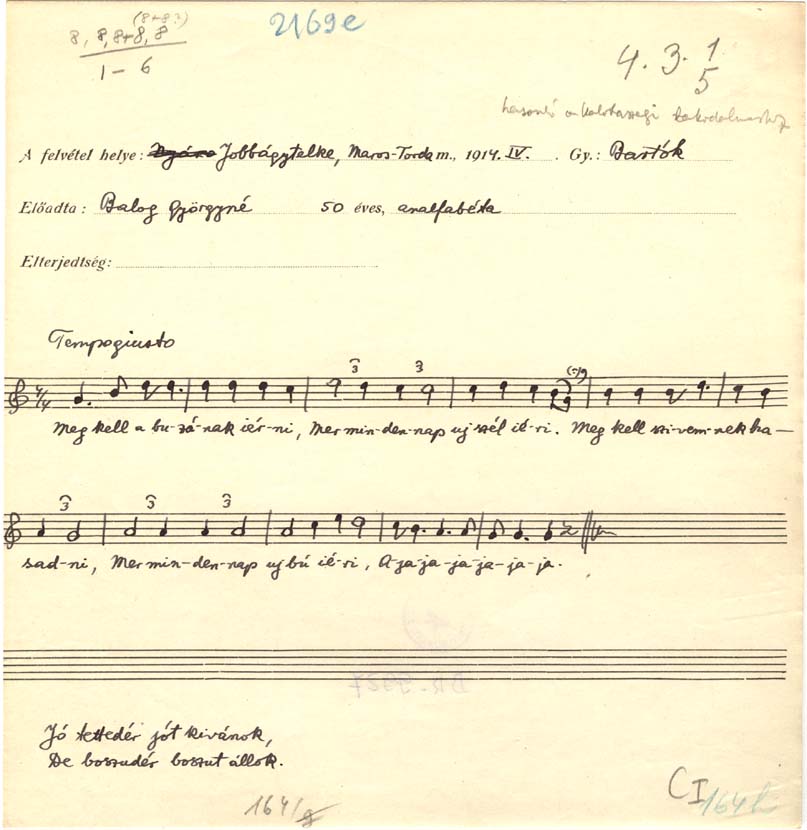 (8+8?)
8, 8, 8+8, 8
1-6
2169e
4. 3. 1
5
hasonló a kalotaszegi
A felvétel helye: Jobbágytelke, Maros-Torda m., 1914. IV. . Gy.: Bartók
Előadta: Balog Györgyné 50 éves, analfabéta
Elterjedtség:
Tempo giusto
3 3
Meg kell a bu-zá-nak iér-ni, Mer min-den-nap uj szél ié-ri. Meg kell szi-vem-nek ha-
3 3 3
sad-ni, Mer min-den-nap uj bú ié-ri, A-ja ja-ja-ja-ja-ja.
BR. 9927
Jó tettedér jót kivánok,
De boszudér boszut állok.
164/g
C I 164h